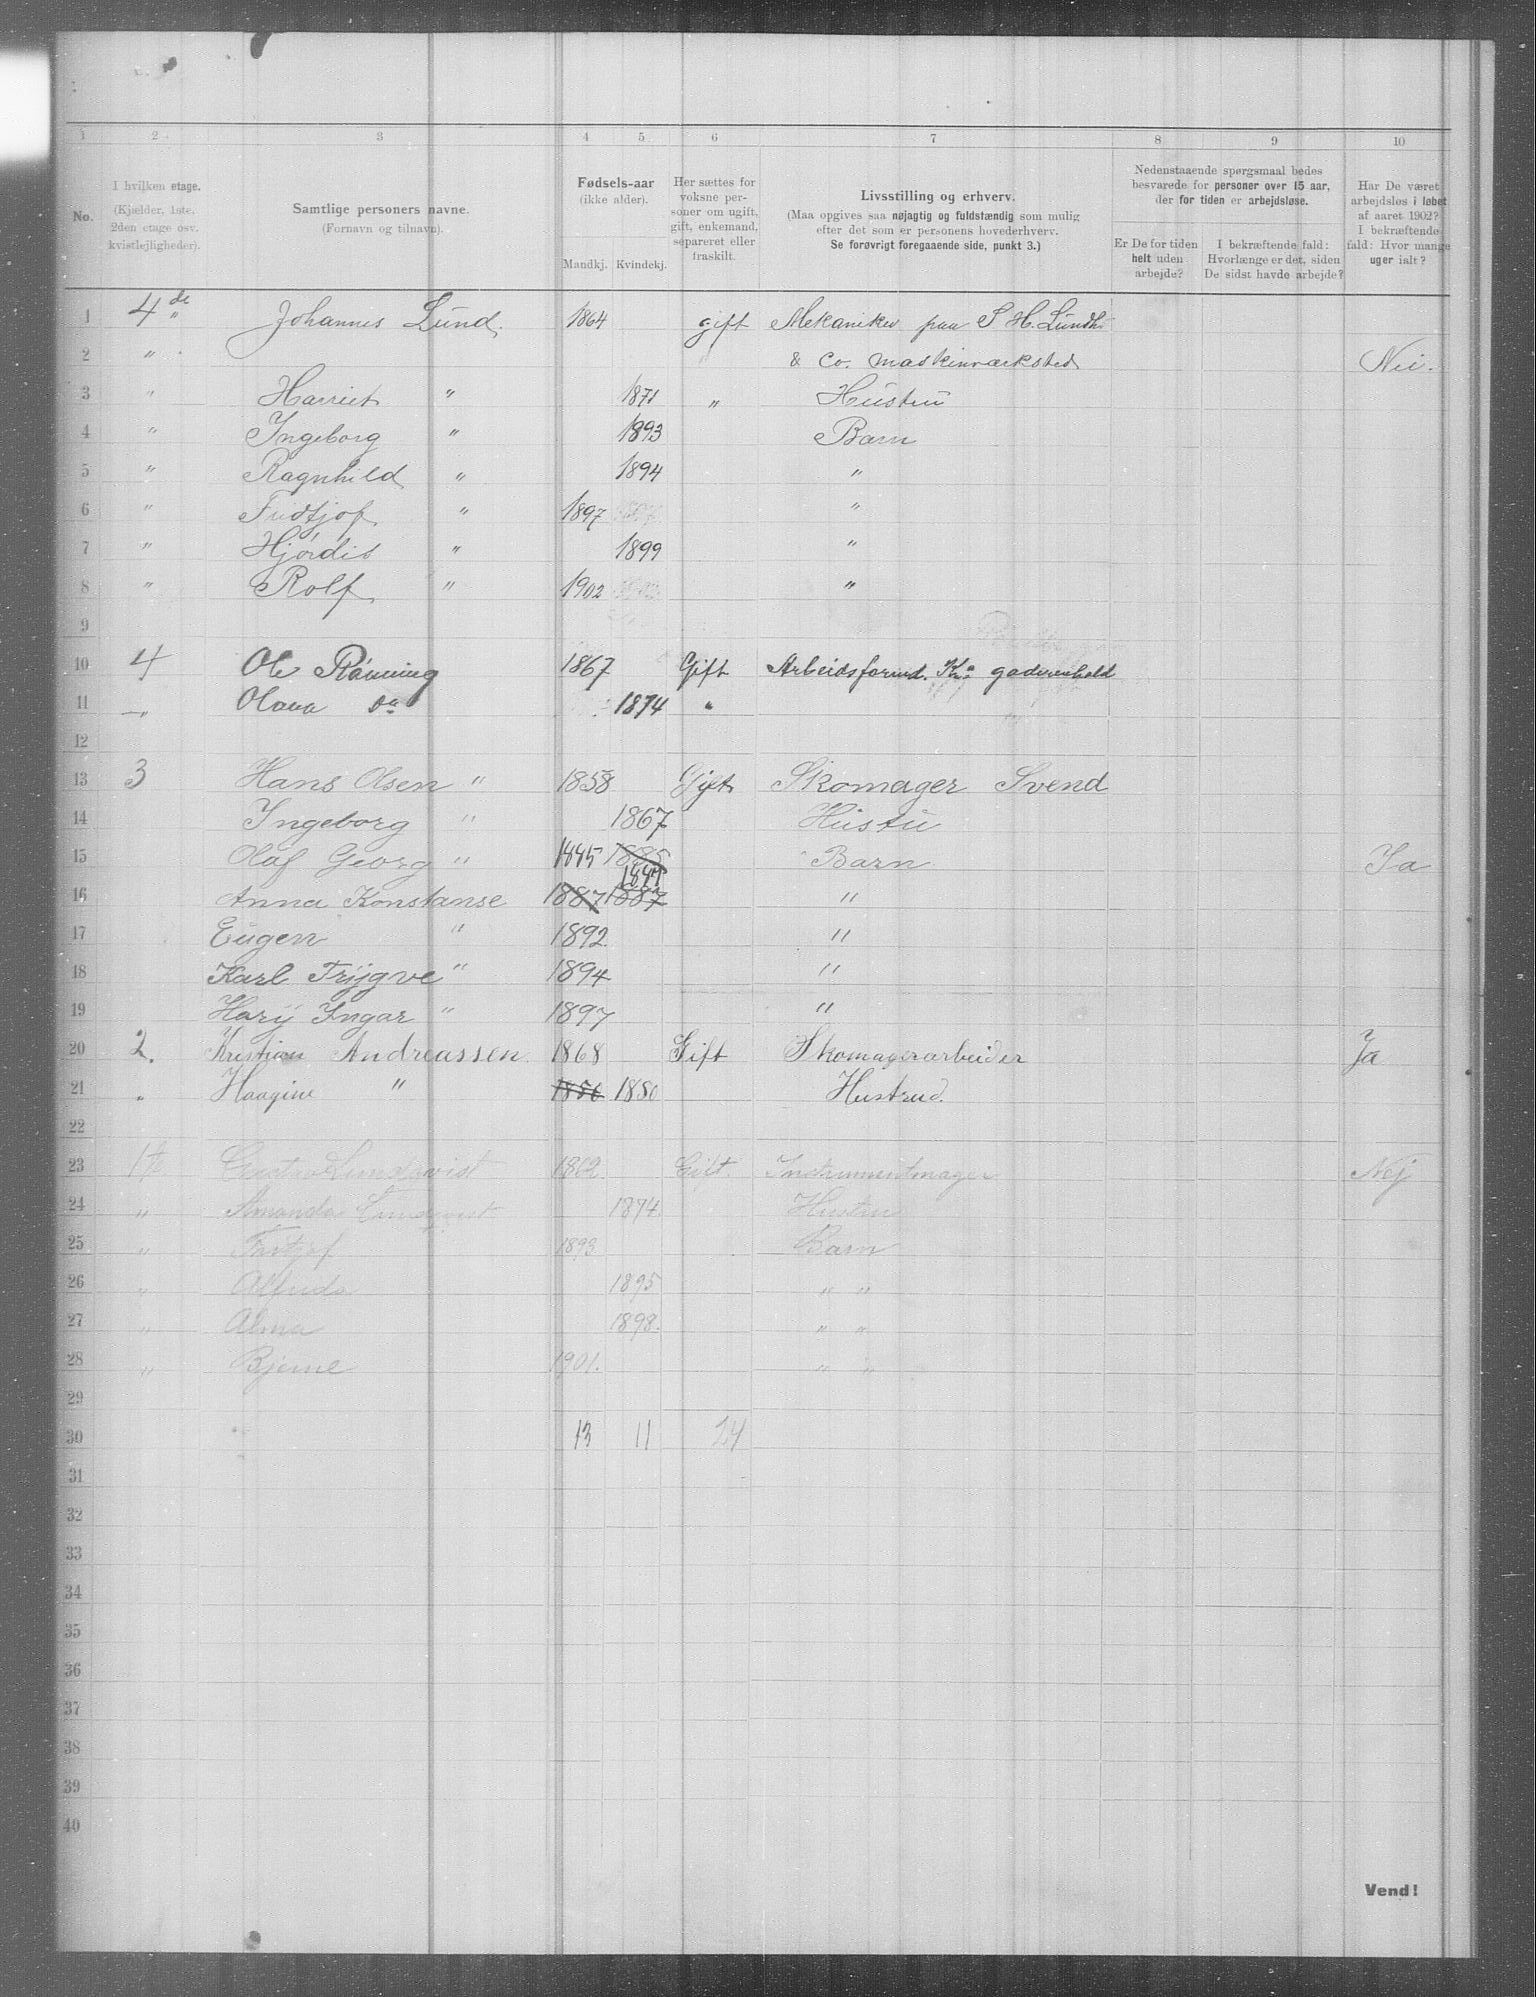 1 2 3 4 5 6 7 8 9 10
No.
I hvilken etage.
(Kjælder, 1ste.
2den etage osv.
kvistlejligheder).
Samtlige personers navne.
(Fornavn og tilnavn).
Fødsels-aar
(ikke alder).
Mandkj. Kvindekj.
Her sættes for
voksne per-
soner om ugift,
gift, enkemand,
separeret eller
fraskilt.
Livsstilling og erhverv.
(Maa opgives saa nøjagtig og fuldstændig som mulig
efter det som er personens hovederhverv.
Se forøvrigt foregaaende side, punkt 3.)
Nedenstaaende spørgsmaal bedes
besvarede for personer over 15 aar,
der for tiden er arbejdsløse.
Er De for tiden
helt uden
arbejde?
I bekræftende fald:
Hvorlænge er det, siden
De sidst havde arbejde?
Har De været
arbejdsløs i løbet
af aaret 1902?
I bekræftende
fald: Hvor mange
uger ialt?
1 4de " Johannes Lund. 1864 gift Mekaniker paa S. H. Lundh
2 " & Co. maskinværksted Nei.
3 " Harriet " 1871 " Hustru
4 " Ingeborg " 1893 Barn
5 " Ragnhild " 1894 "
6 " Fridtjof " 1897 "
7 " Hjørdis " 1899 "
8 " Rolf " 1902 "
9
10 4 Ole Rønning 1867 Gift Arbeidsformd. Kra gaderenhold
11 " Olava do 1874 "
12
13 3 Hans Olsen " 1858 Gift Skomager Svend
14 Ingeborg " 1867 Hustru
15 Olaf Georg " 1885 1885 Barn Ja
16 Anna Konstanse 1887 1887 1887 "
17 Eugen " 1892 "
18 Karl Trygve " 1894 "
19 Hary Ingar " 1897 "
20 2. Kristian Andreassen 1868 Gift Skomagerarbeider Ja
21 " Haagine " 1850 Hustrud.
22
23 Gustav Lundqvist 1862 Gift. Instrumentmager Nej
24 " Amanda Lundqvist 1874. Hustru
25 " 1893 Barn
26 " Alfrida 1895 " "
27 " Alma 1898. " "
28 " Bjerne 1901. " "
29
30 13 11 24
31
32
33
34
35
36
37
38
39
40
Vend!